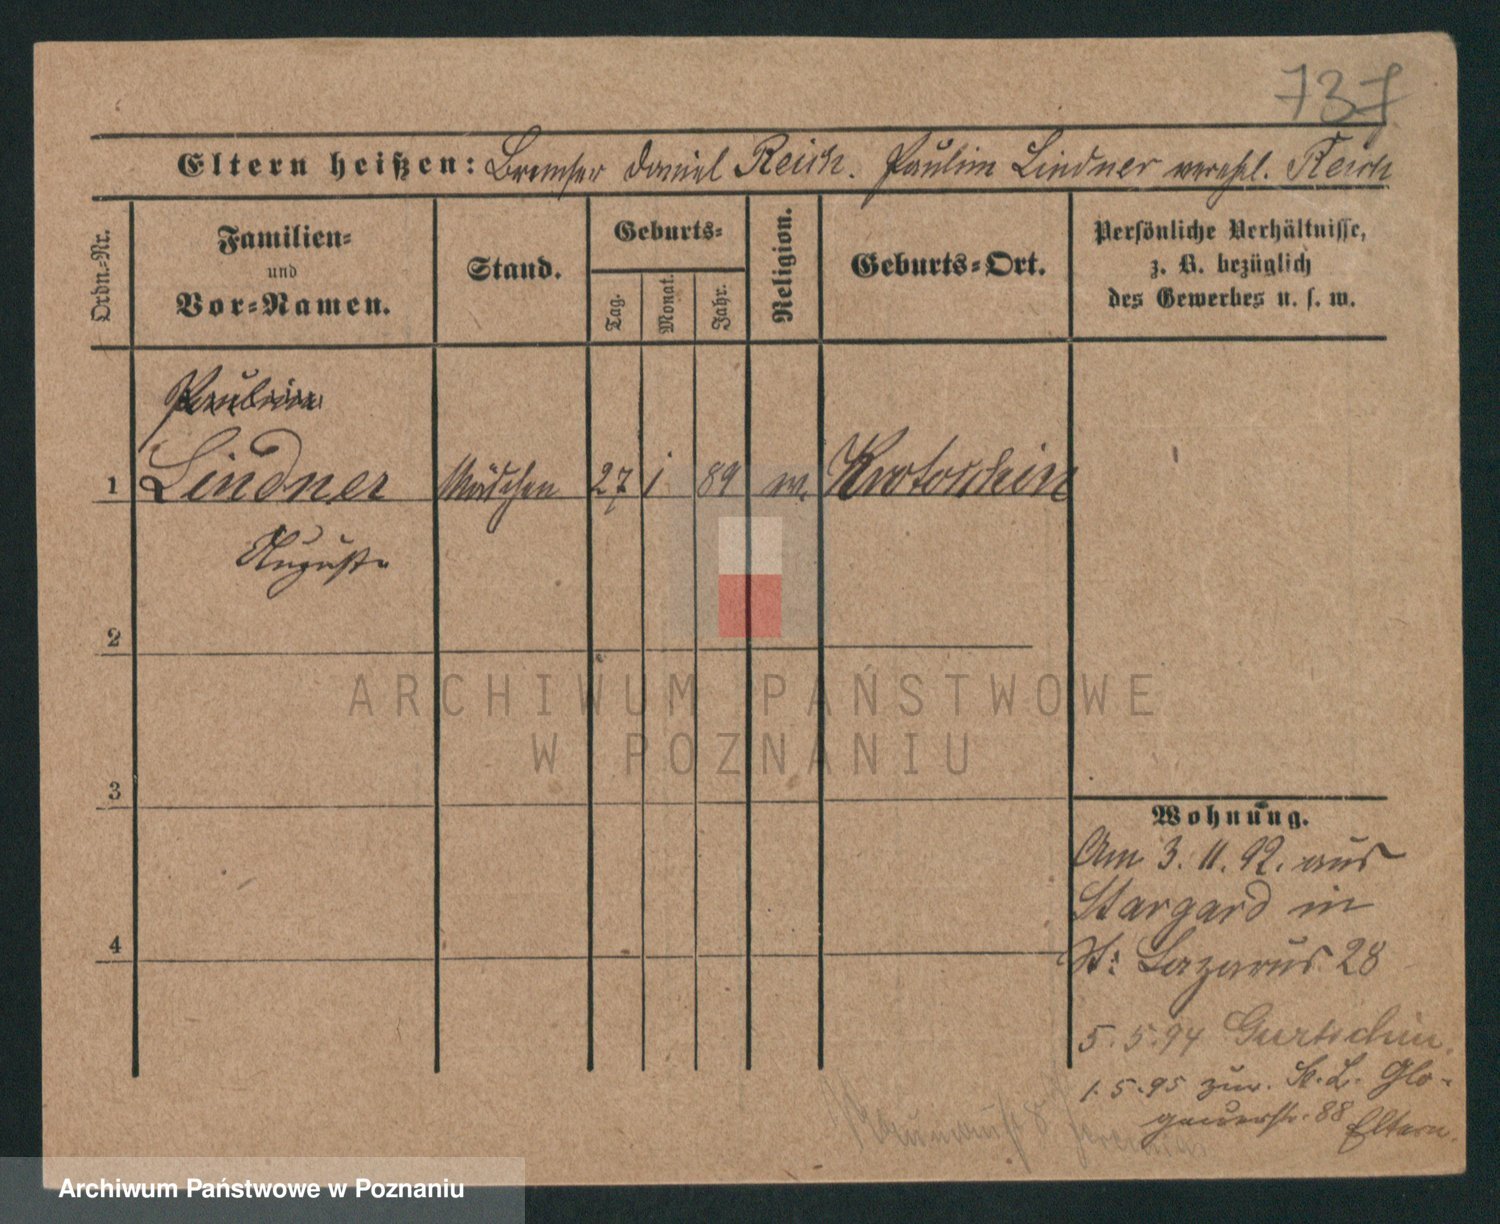 737
Eltern heißen: Bremser Daniel Reich. Paulin Lindner verehl. Reich
Ordn.-Nr.
Familien-
und
Vor-Namen.
Stand.
Geburts-
Tag.
Monat.
Jahr.
Religion.
Geburts-Ort.
Persönliche Verhältnisse,
z. B. bezüglich
des Gewerbes u. s. w.
1 Lindner Mädchen 27 1 89 Krotoschin
Auguste
2
3
4
Wohnung.
Am 3. 11. 92. aus
Stargard in
St: Lazarus 28
5. 5. 94 Gurtschin.
1. 5. 95 zur. St. L. Glo-
gauerstr. 88 Eltern.
ARCHIWUM PAŃSTWOWE
W POZNANIU
Archiwum Państwowe w Poznaniu